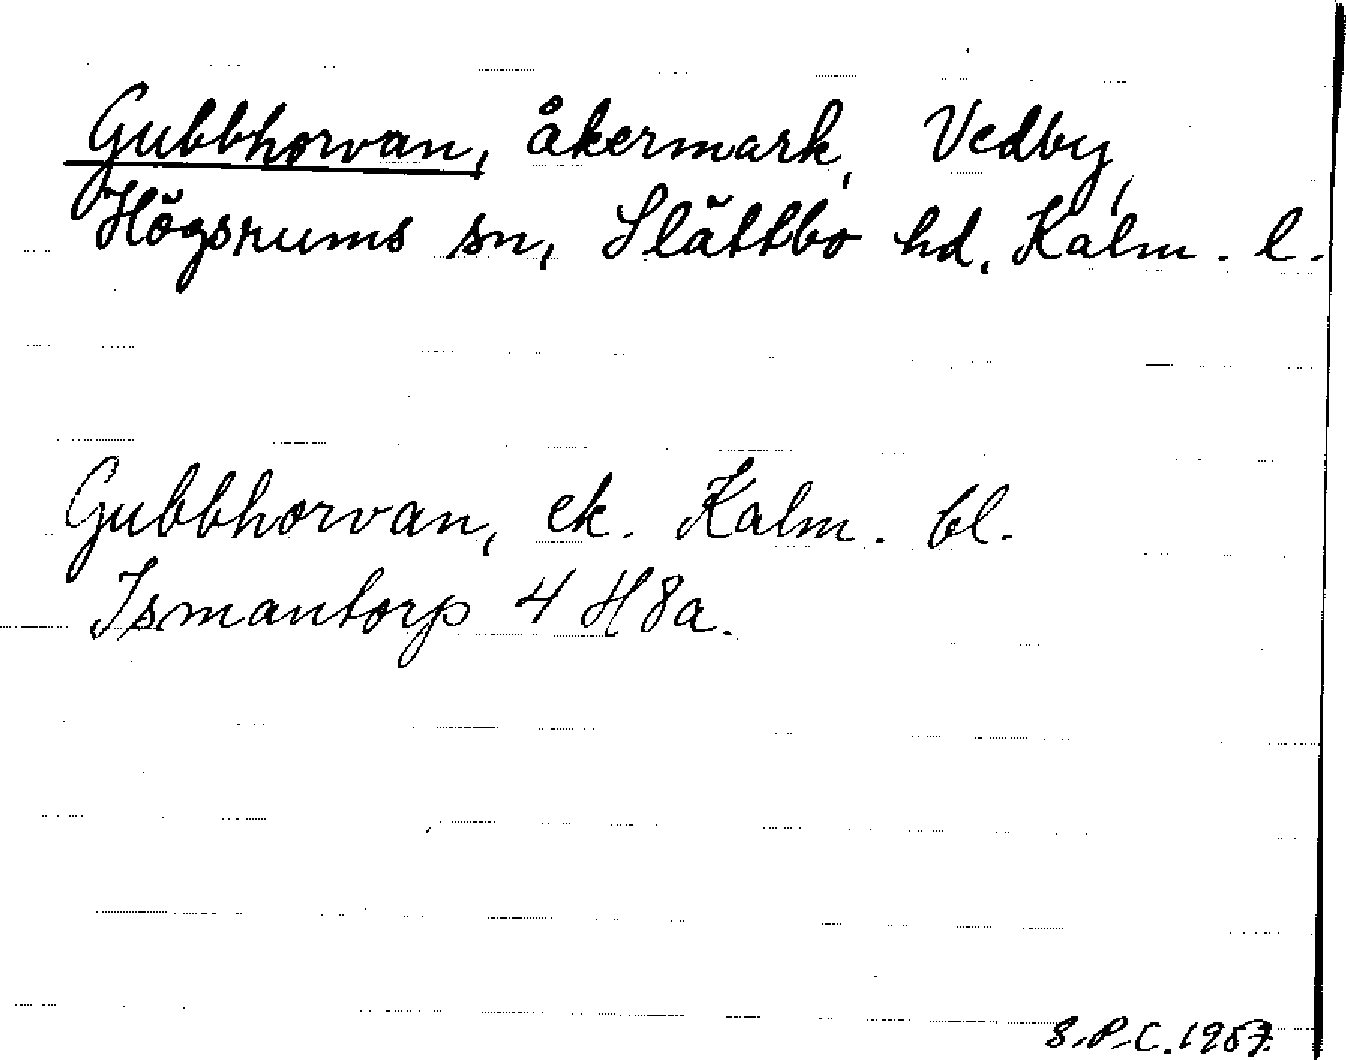 Gubbhorvan, åkermark, Vedby,
Högsrums sn, Slättbo hd, Kalm. l.
Gubbhorvan, ek. Kalm. bl.
Ismantorp 4 H 8a.
S.P.C. 1957.